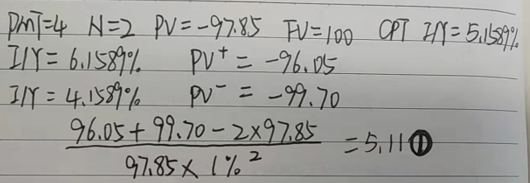 PMT=4 N=2 PV=-97.85 FV=100 CPT I/Y=5.1589%
I/Y=6.1589% PV⁺=-96.05
I/Y=4.1589% PV⁻=-99.70
96.05+99.70-2×97.85
97.85×1%² =5.11①